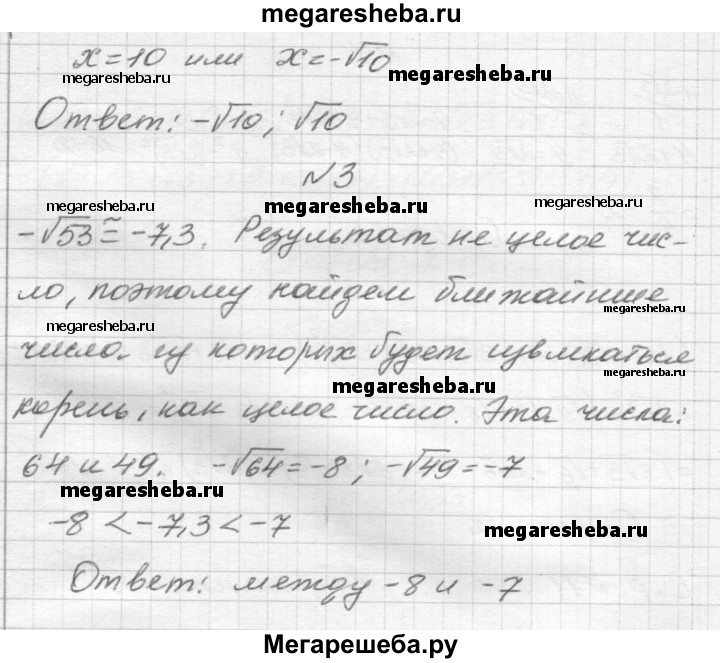 megaresheba.ru
x=10 или x=-√10
megaresheba.ru
megaresheba.ru
Ответ: -√10; √10
№3
megaresheba.ru
megaresheba.ru
megaresheba.ru
-√53 ≅ -7,3. Результат не целое чис-
ло, поэтому найдем ближайшие
megaresheba.ru
числа из которых будет извлкаться
megaresheba.ru
megaresheba.ru
корень, как целое число. Эта числа:
64 и 49. -√64=-8; -√49=-7
megaresheba.ru
-8 < -7,3 < -7
megaresheba.ru
Ответ: между -8 и -7
Мегарешеба.ру